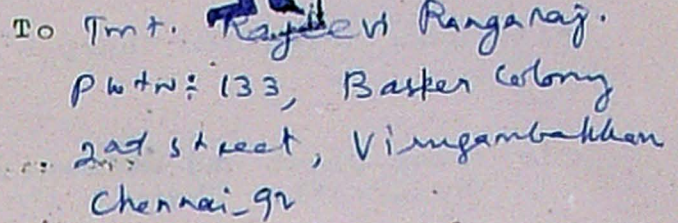 To Tmt. Rajdevi Rangaraj.
Plot No: 133, Basker Colony
2nd street, Virugambakkam
Chennai-92